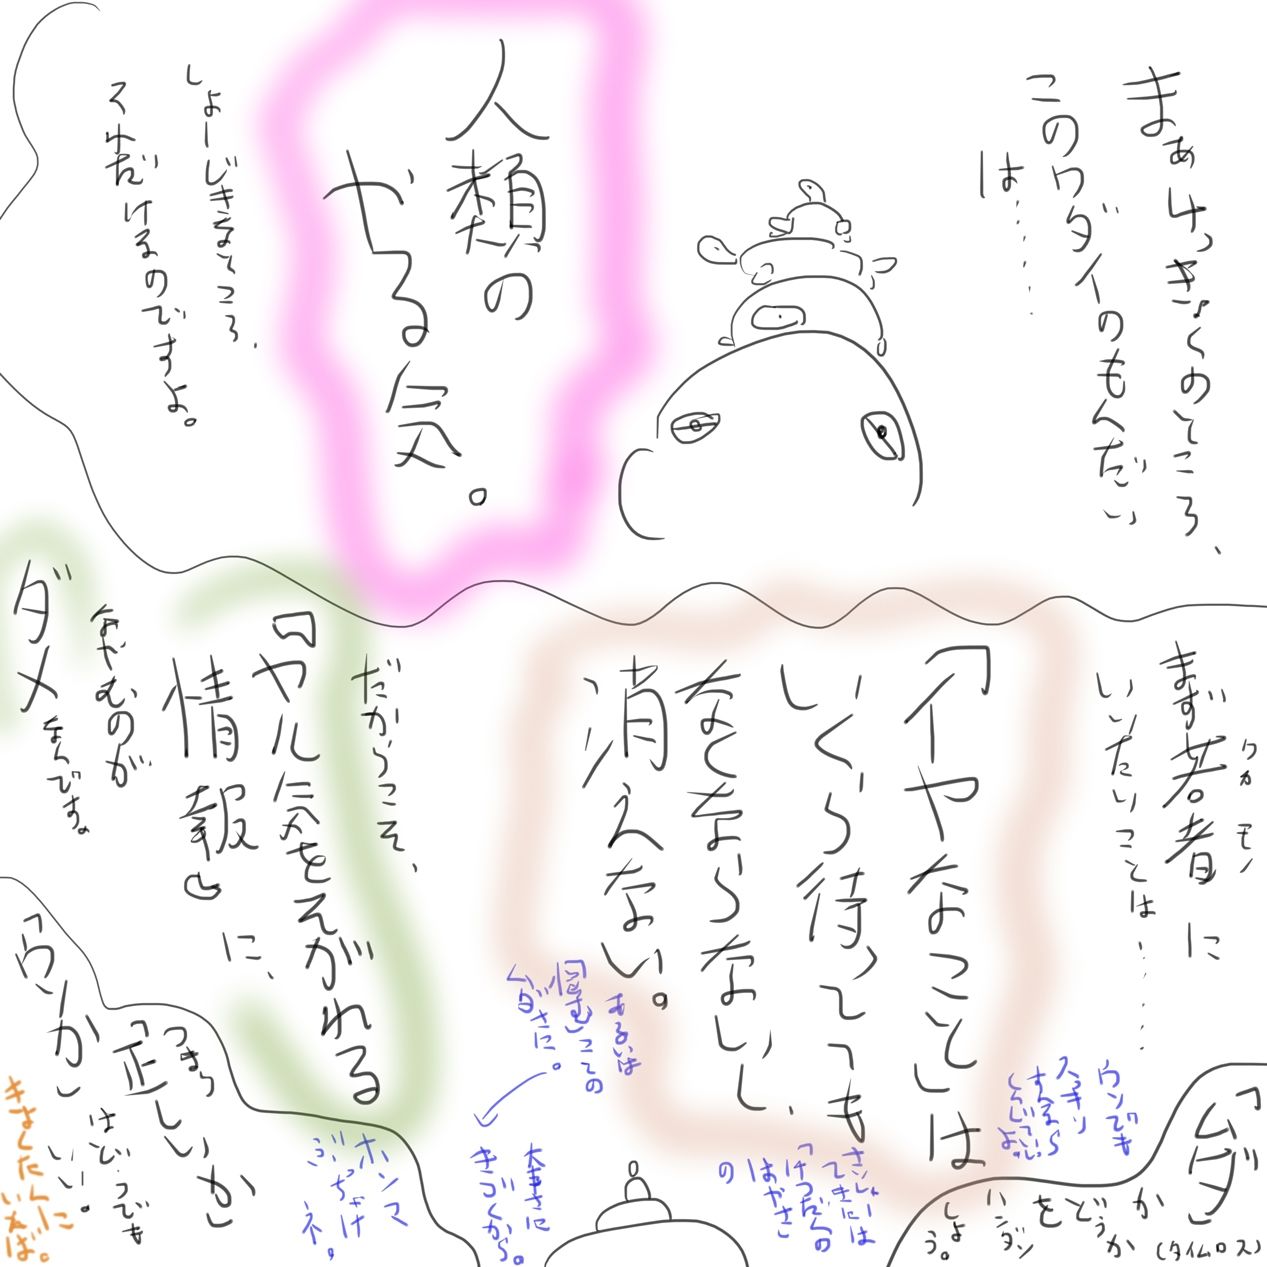 まぁけっきょくのところ、
このワダイのもんだい
は......
人類の
やる気。
しょーじきなところ、
それだけなのですよ。
まず若者に
ワカモン
いいたいことは......
「イヤなこと」は
いくら待っても
なくならないし、
消えない。
ウンでも
スッキリ
するまら
あるいは
「悩む」ことの
ムダさに。
大事さに
きづくから。
さいしゅー
てきには
「けつだんの
はやさ」
の
だからこそ、
『ヤル気をそがれる
情報』に、
なやむのが
ダメなんです。
ホンマ
ぶっちゃけ
ネ。
「ムダ」
か
どうか
を
ハンダン
しよ
う。
(タイムロス)
つまり
「正しいか」
「ウソか」
はどっちでも
いい。
きょくたんに
いえば。